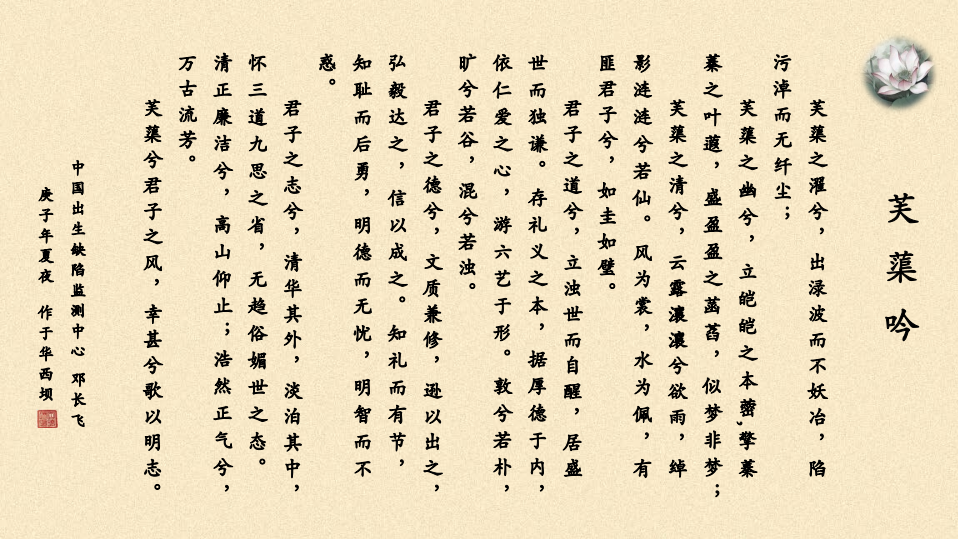 芙蕖吟
芙蕖之濯兮，出渌波而不妖冶，陷
污淖而无纤尘；
芙蕖之幽兮，立皑皑之本蔤,擎蓁
蓁之叶蕸，盛盈盈之菡萏，似梦非梦；
芙蕖之清兮，云露瀼瀼兮欲雨，绰
影涟涟兮若仙。风为裳，水为佩，有
匪君子兮，如圭如璧。
君子之道兮，立浊世而自醒，居盛
世而独谦。存礼义之本，据厚德于内，
依仁爱之心，游六艺于形。敦兮若朴，
旷兮若谷，混兮若浊。
君子之德兮，文质兼修，逊以出之，
弘毅达之，信以成之。知礼而有节，
知耻而后勇，明德而无忧，明智而不
惑。
君子之志兮，清华其外，淡泊其中，
怀三道九思之省，无趋俗媚世之态。
清正廉洁兮，高山仰止；浩然正气兮，
万古流芳。
芙蕖兮君子之风，幸甚兮歌以明志。
中国出生缺陷监测中心 邓长飞
庚子年夏夜 作于华西坝